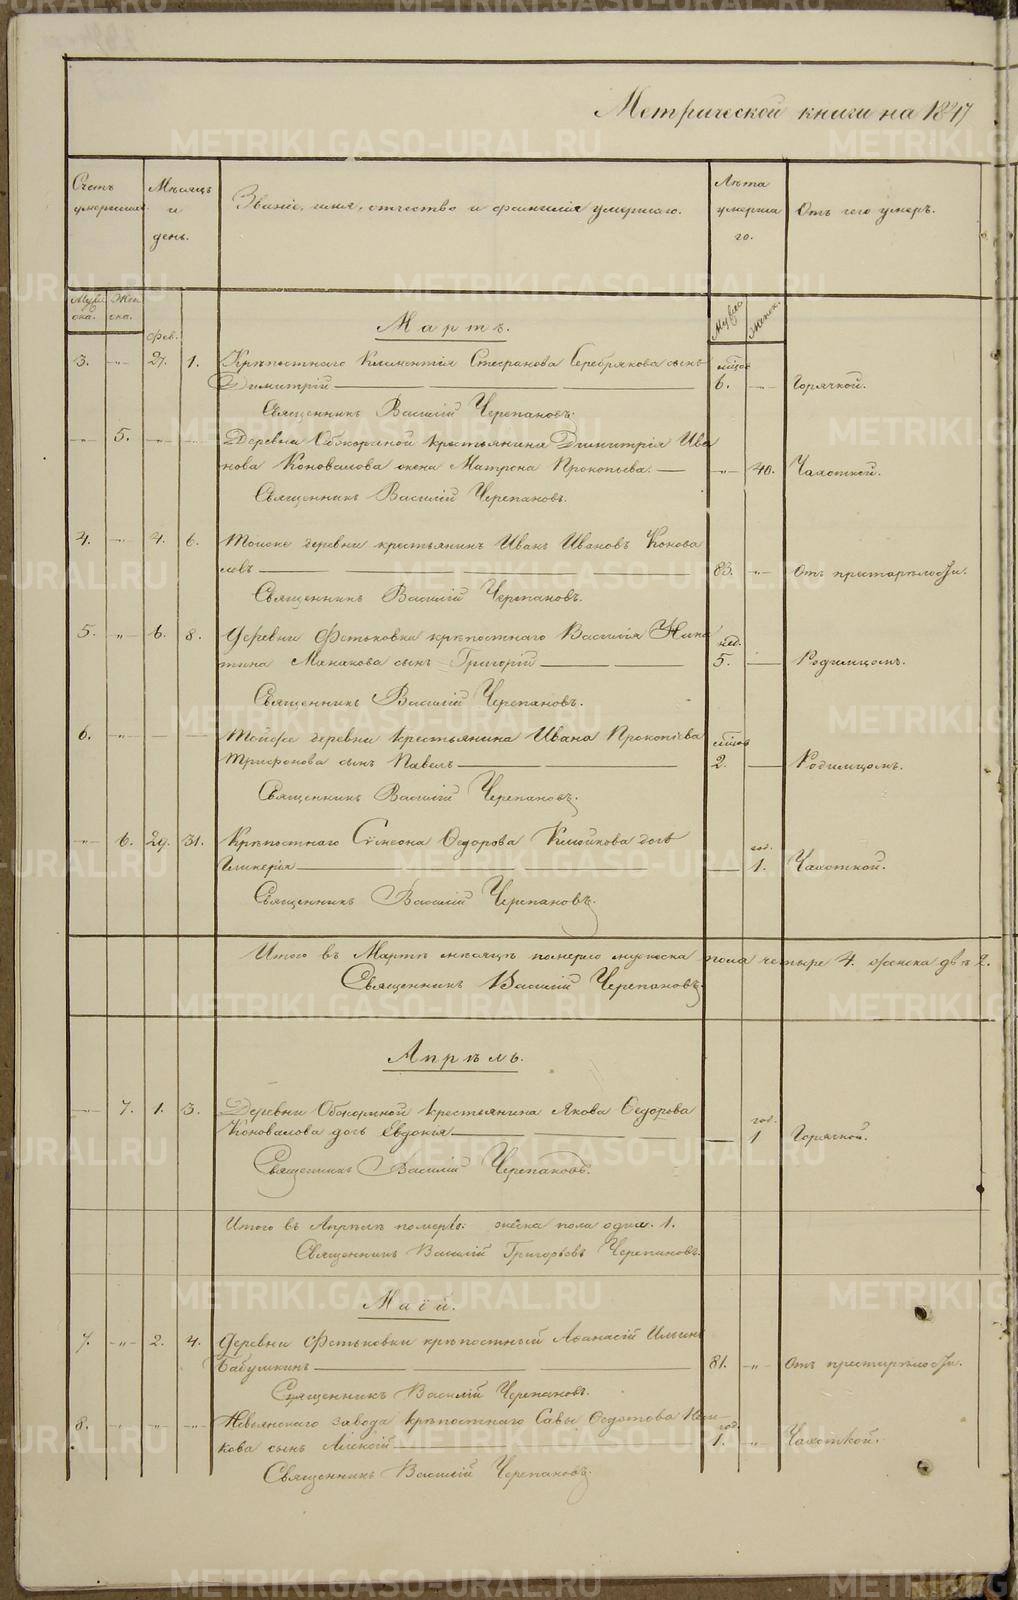 Метрической книги на 1847
Счетъ умершихъ.
Мѣсяцъ и день.
Званіе, имя, отчество и фамилія умершаго.
Лѣта умершаго.
Отъ чего умеръ.
Муже ска.
Жен ска.
Муже
Женск.
Мартъ.
Фев.
3. -"- 27. 1. Крѣпостнаго Климентія Стефанова Серебрякова сынъ мѣсяц.
Димитрій 6. Горячкой.
Священникъ Василій Черепановъ.
-"- 5. Деревни Обжориной крестьянина Димитрія Ива
нова Коновалова жена Матрона Прокопьева. -"- 40. Чахоткой.
Священникъ Василій Черепановъ.
4. -"- 4. 6. Тойже деревни крестьянинъ Иванъ Ивановъ Конова
ловъ 83. -"- Отъ престарѣлости.
Священникъ Василій Черепановъ.
5. -"- 6. 8. Деревни Фотьковки крѣпостнаго Василія Ники нед.
тина Манакова сынъ Григорій 5. Родимцомъ.
Священникъ Василій Черепановъ.
6. -"- Тойже деревни крестьянина Ивана Прокопіева мѣсяц.
Трифонова сынъ Павелъ 2. Родимцомъ.
Священникъ Василій Черепановъ.
-"- 6. 29. 31. Крѣпостнаго Сѵмеона Ѳедорова дочь год.
Гликерія 1. Чахоткой.
Священникъ Василій Черепановъ.
Итого въ Мартѣ мѣсяцѣ померло мужеска пола четыре 4. женска двѣ 2.
Священникъ Василій Черепановъ.
Апрѣль.
7. 1. 3. Деревни крестьянина Якова Ѳедорова год.
Коновалова дочь Евдокія 1 Горячкой.
Священникъ Василій Черепановъ.
Итого въ Апрѣлѣ померло: женска пола одна. 1.
Священникъ Василій Григорьевъ Черепановъ.
Маій.
7. -"- 2. 4. Деревни Фотьковки крѣпостный Аѳанасій Ильинъ
Бабушкинъ 81. -"- Отъ престарѣлости.
Священникъ Василій Черепановъ.
8. " " " Невьянскаго завода крѣпостнаго Савы Ѳедотова год.
кова сынъ Алексій 1. " Чахоткой.
Священникъ Василій Черепановъ.
METRIKI.GASO-URAL.RU